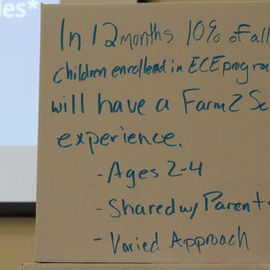 les*
In 12 months 10% of all
children enrollead in ECE progra
will have a Farm 2 Sc
experience.
- Ages 2-4
- Shared w/ Parent
- Varied Approach